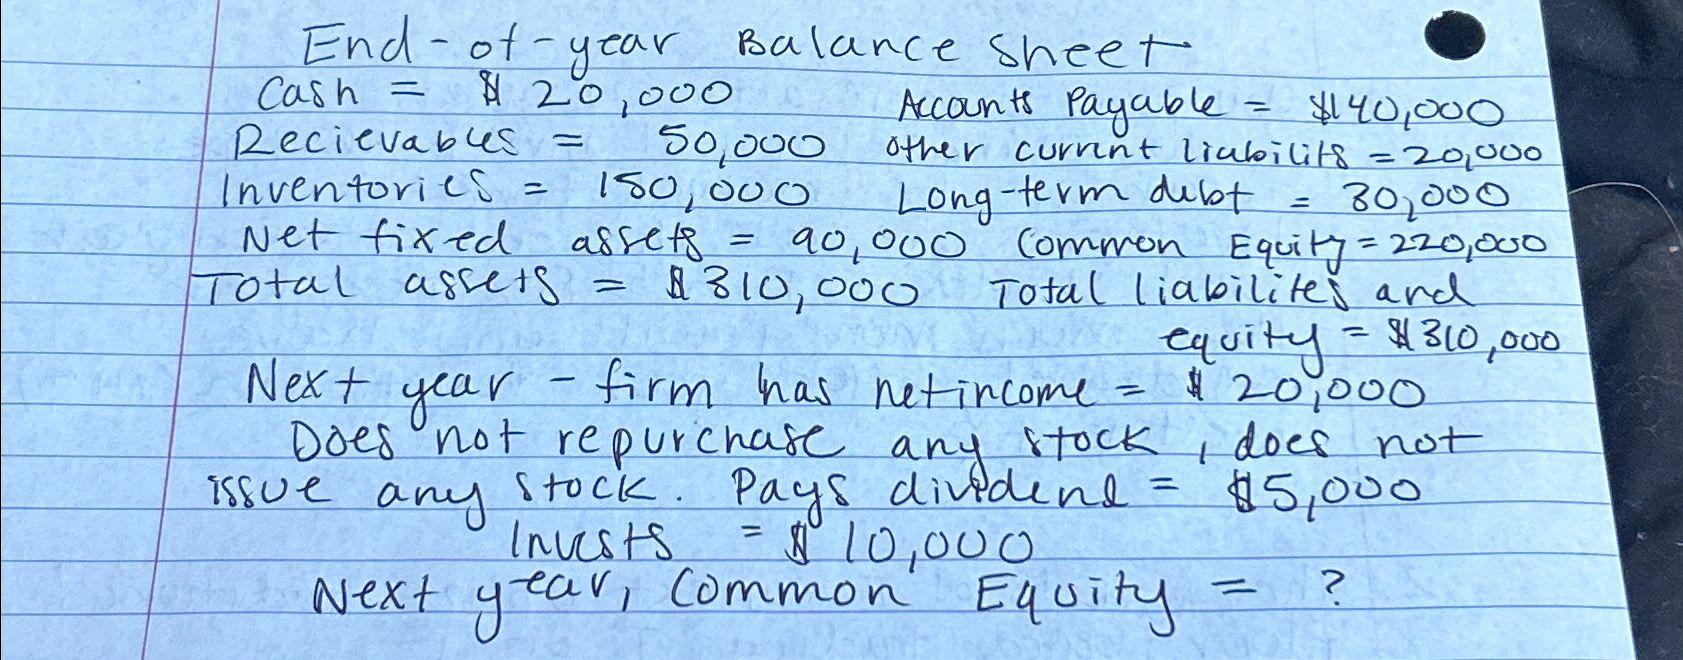 End-of-year Balance sheet
Cash = $ 20,000 Accounts Payable = $40,000
Recievables = 50,000 other current liabilits = 20,000
Inventories = 150,000 Long-term debt = 30,000
Net fixed assets = 90,000 Common Equity = 220,000
Total assets = $310,000 Total liabilites and
equity = $310,000
Next year - firm has net income = $ 20,000
Does not repurchase any stock, does not
issue any stock. Pays dividend = $5,000
Invests = $ 10,000
Next year, Common Equity = ?